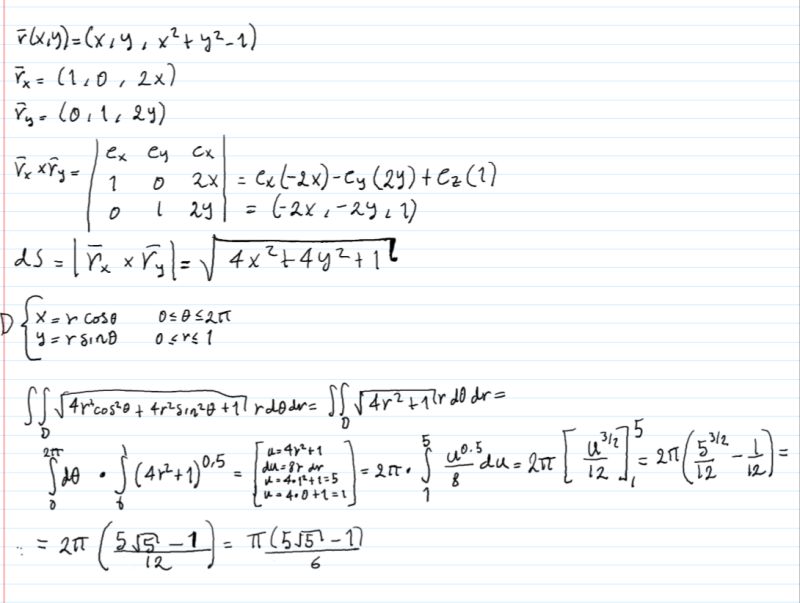 r̄(x,y)=(x,y, x²+y²-1)
r̄ₓ= (1,0, 2x)
r̄ᵧ= (0,1,2y)
r̄ₓ×r̄ᵧ= |eₓ eᵧ eₓ; 1 0 2x; 0 1 2y| = eₓ(-2x)-eᵧ(2y)+e_z(1)
= (-2x,-2y,1)
dS = |r̄ₓ × r̄ᵧ|= √(4x²+4y²+1)
D { x=r cosθ 0≤θ≤2π
y=r sinθ 0≤r≤1
∬_D √(4r²cos²θ + 4r²sin²θ +1) r dθdr= ∬_D √(4r²+1) r dθ dr=
∫₀^2π dθ · ∫₀¹ (4r²+1)^0,5 = [u=4r²+1; du=8r dr; u=4·1²+1=5; u=4·0+1=1] = 2π· ∫₁⁵ u^0.5/8 du = 2π [u^3/2/12]₁⁵ = 2π(5^3/2/12 - 1/12)=
= 2π ((5√5 -1)/12) = π(5√5 -1)/6